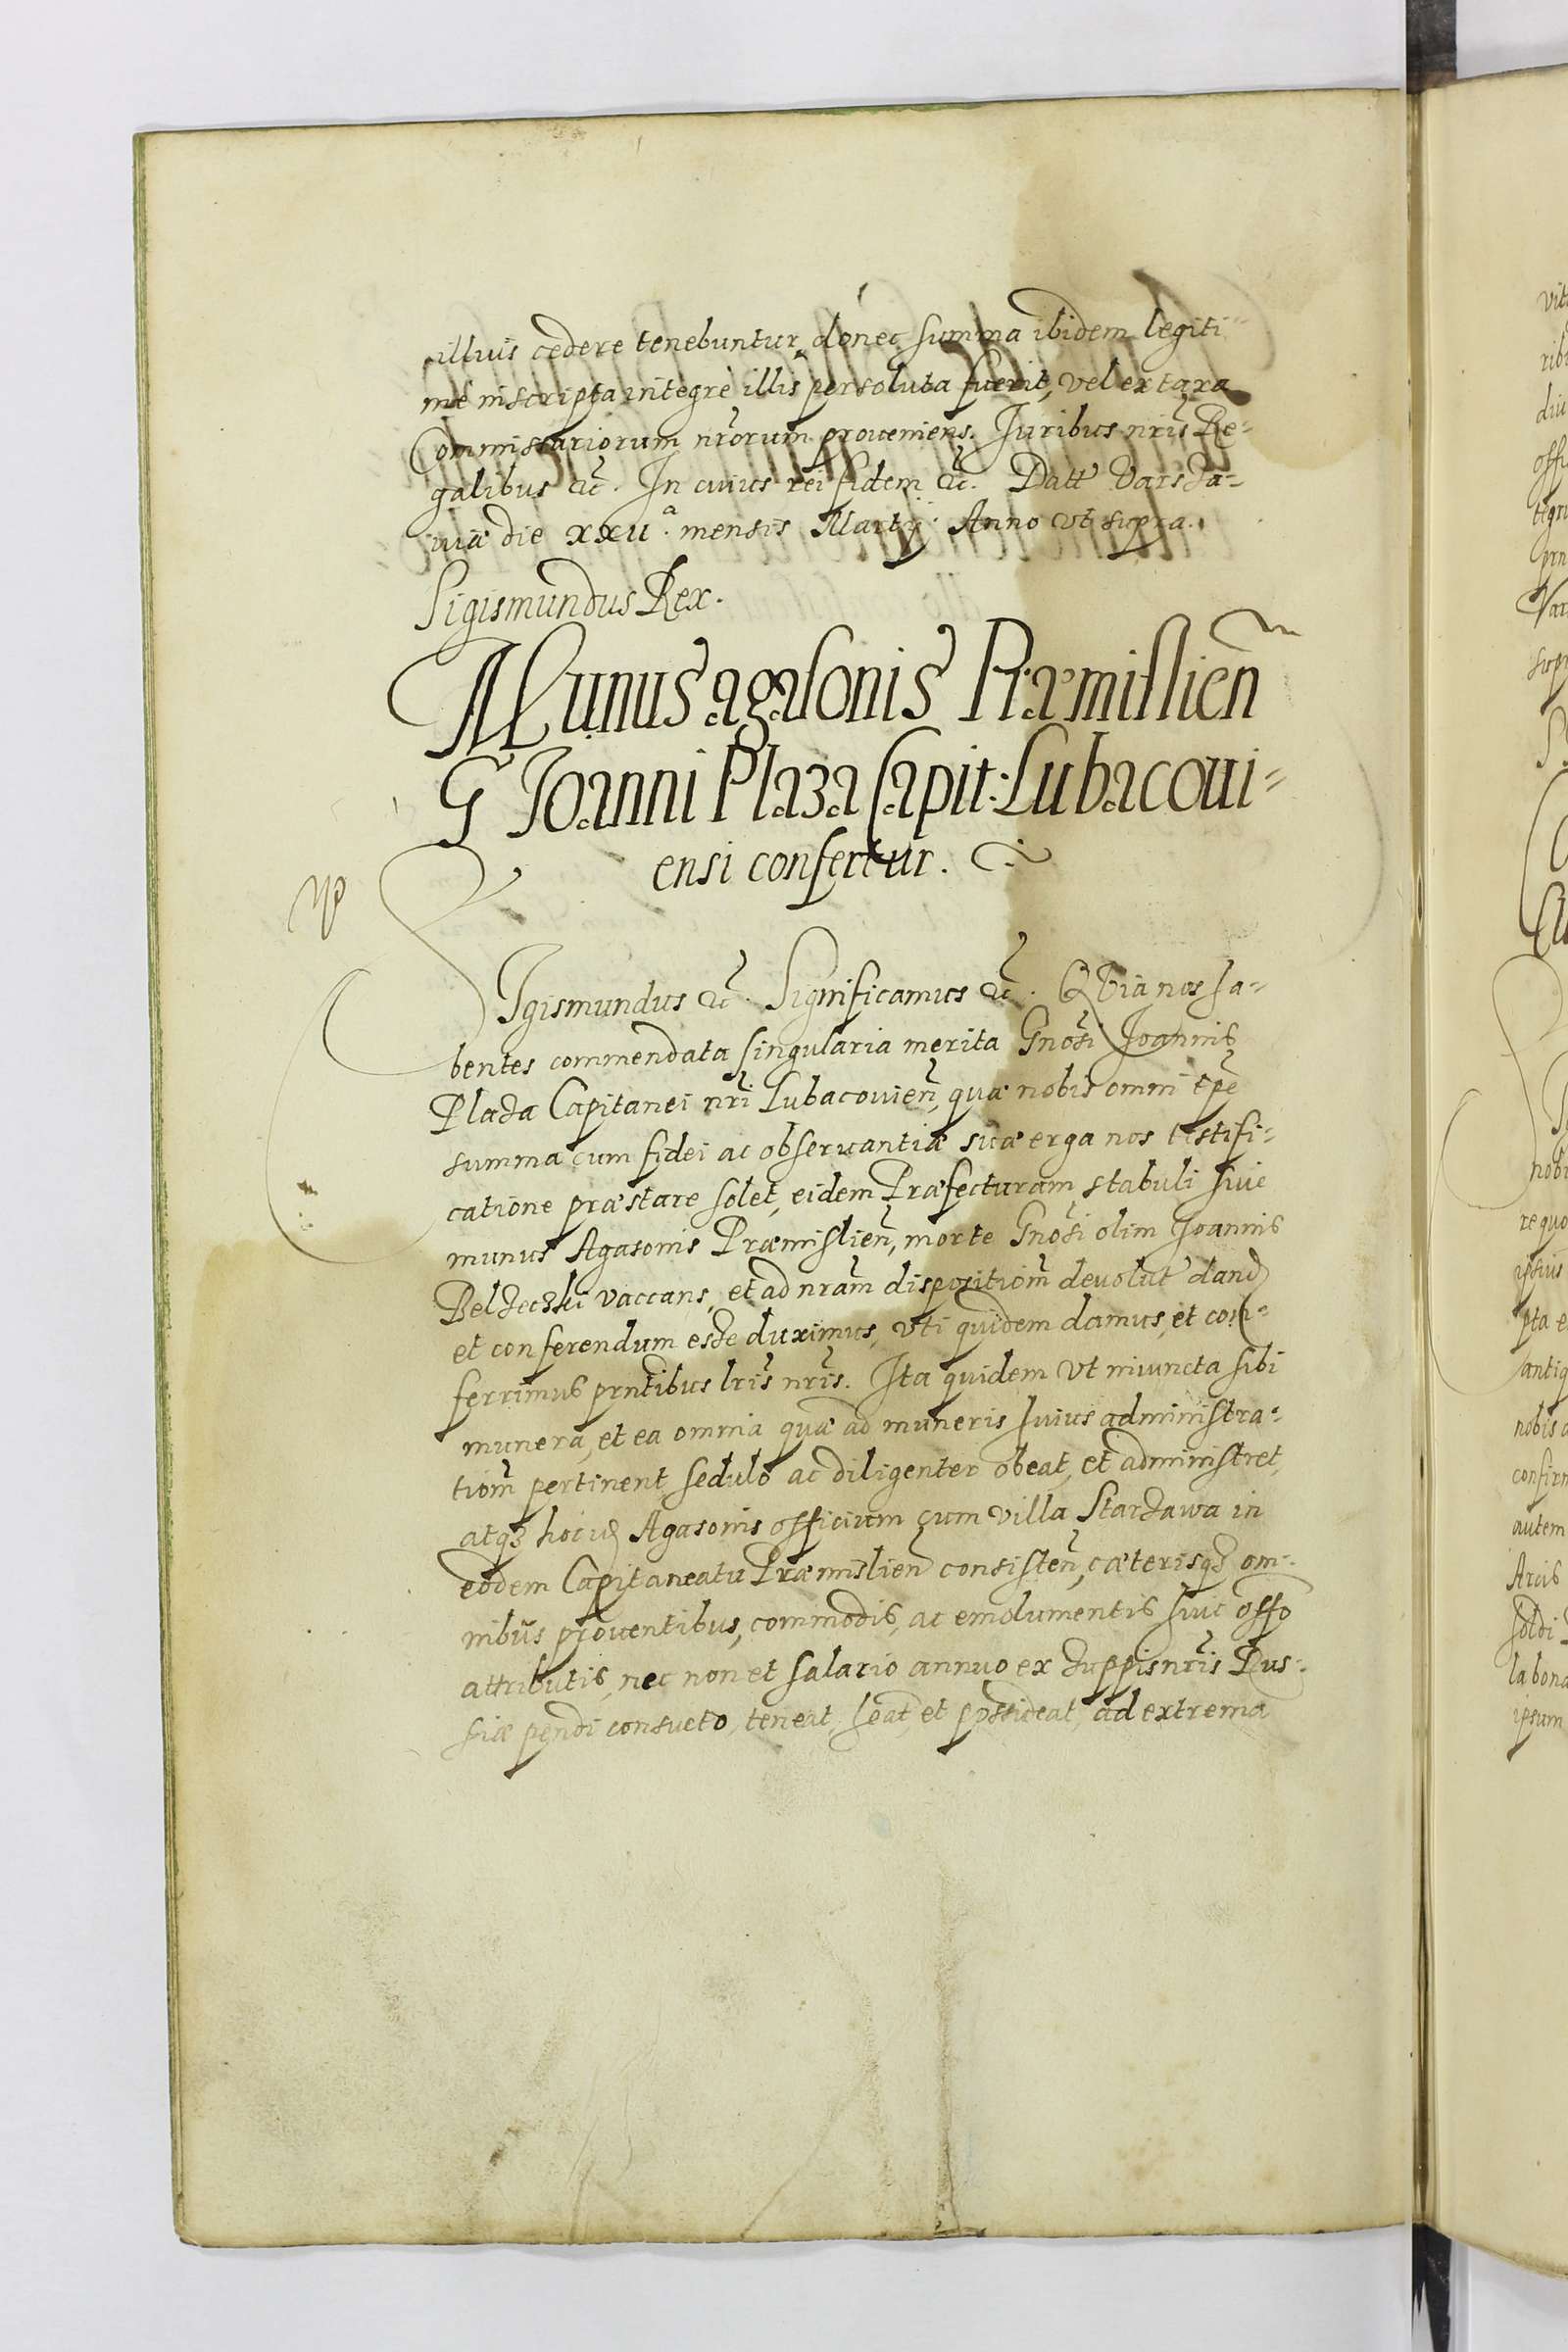 illius cedere tenebuntur, donec summa ibidem legiti
mè inscripta integrè illis persoluta fuerit, vel ex taxa
Commissariorum nr̃orum proueniens. Juribus nr̃is Re-
galibus &c̃. In cuius rei fidem &c̃. Datt Varscha-
uiæ die xxv.ᵃ mensis Martij Anno vt supra.
Sigismundus Rex.
Munus agasonis Præmislien̄
G Joanni Plaza Capit: Lubacoui-
ensi confertur.
Sigismundus &c̃. Significamus &c̃. Quia nos ha-
bentes commendata singularia merita Gnosi Joannis
Plaza Capitanei nr̃i Lubacouien̄, quæ nobis omni tp̃e
summa cum fidei ac obseruantiæ suæ erga nos testifi-
catione præstare solet, eidem Præfecturam stabuli siue
munus Agasonis Præmislien̄, morte Gnosi olim Joannis
Belzeczki vaccans, et ad nr̃am dispositiom̄ devolut dand
et conferendum esse duximus, vti quidem damus, et con-
ferrimus prñtibus lr̃is nr̃is. Ita quidem vt iniuncta sibi
munera, et ea omnia quæ ad muneris huius administra-
tiom̄ pertinent sedulo ac diligenter obeat, et administret,
atq3 Agasonis officium cum villa Starzawa in
eodem Capitaneatu Præmislien̄ consisten̄, cæterisq3 om-
nibus prouentibus, commodis, ac emolumentis huic offo
attributis, nec non et salario annuo ex zuppis nr̃is Rus-
siæ pendi consueto, teneat, heat, et possideat, ad extrema